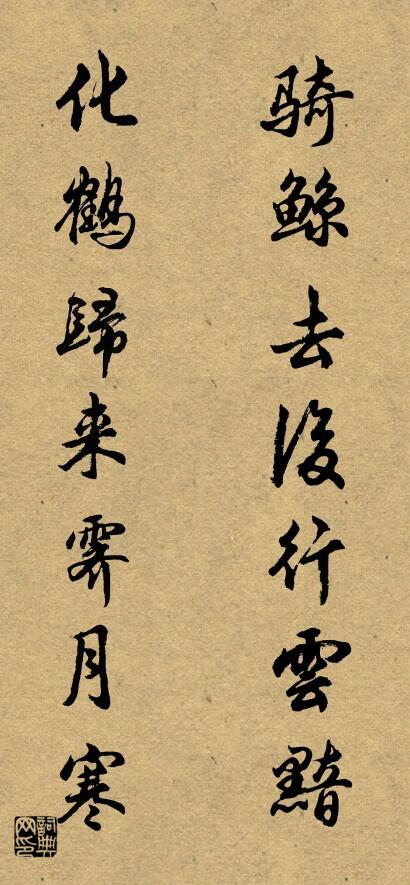 騎鲸去後行雲黯
化鶴歸来霽月寒
詞典网印